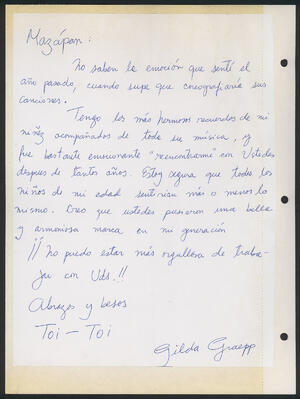 Mazápan:
No saben la emoción que sentí el
año pasado, cuando supe que coreografiaría sus
canciones.
Tengo los más hermosos recuerdos de mi
niñez acompañados de toda su música, y
fue bastante emocionante "reecontrarme" con Ustedes
despues de tantos años. Estoy segura que todos los
niños de mi edad sentirían más o menos lo
mismo. Creo que ustedes pusieron una bella
y armoniosa marca en mi generación
¡¡ No puedo estar más orgullosa de traba-
jar con Uds.!!
Abrazos y besos
Toi - Toi
Gilda Graepp